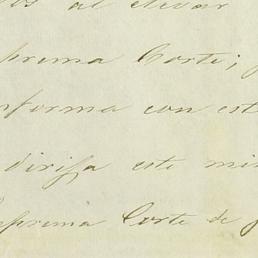 al elevar
prema Corte;
nforma con est
dirija este mi
Suprema Corte de j